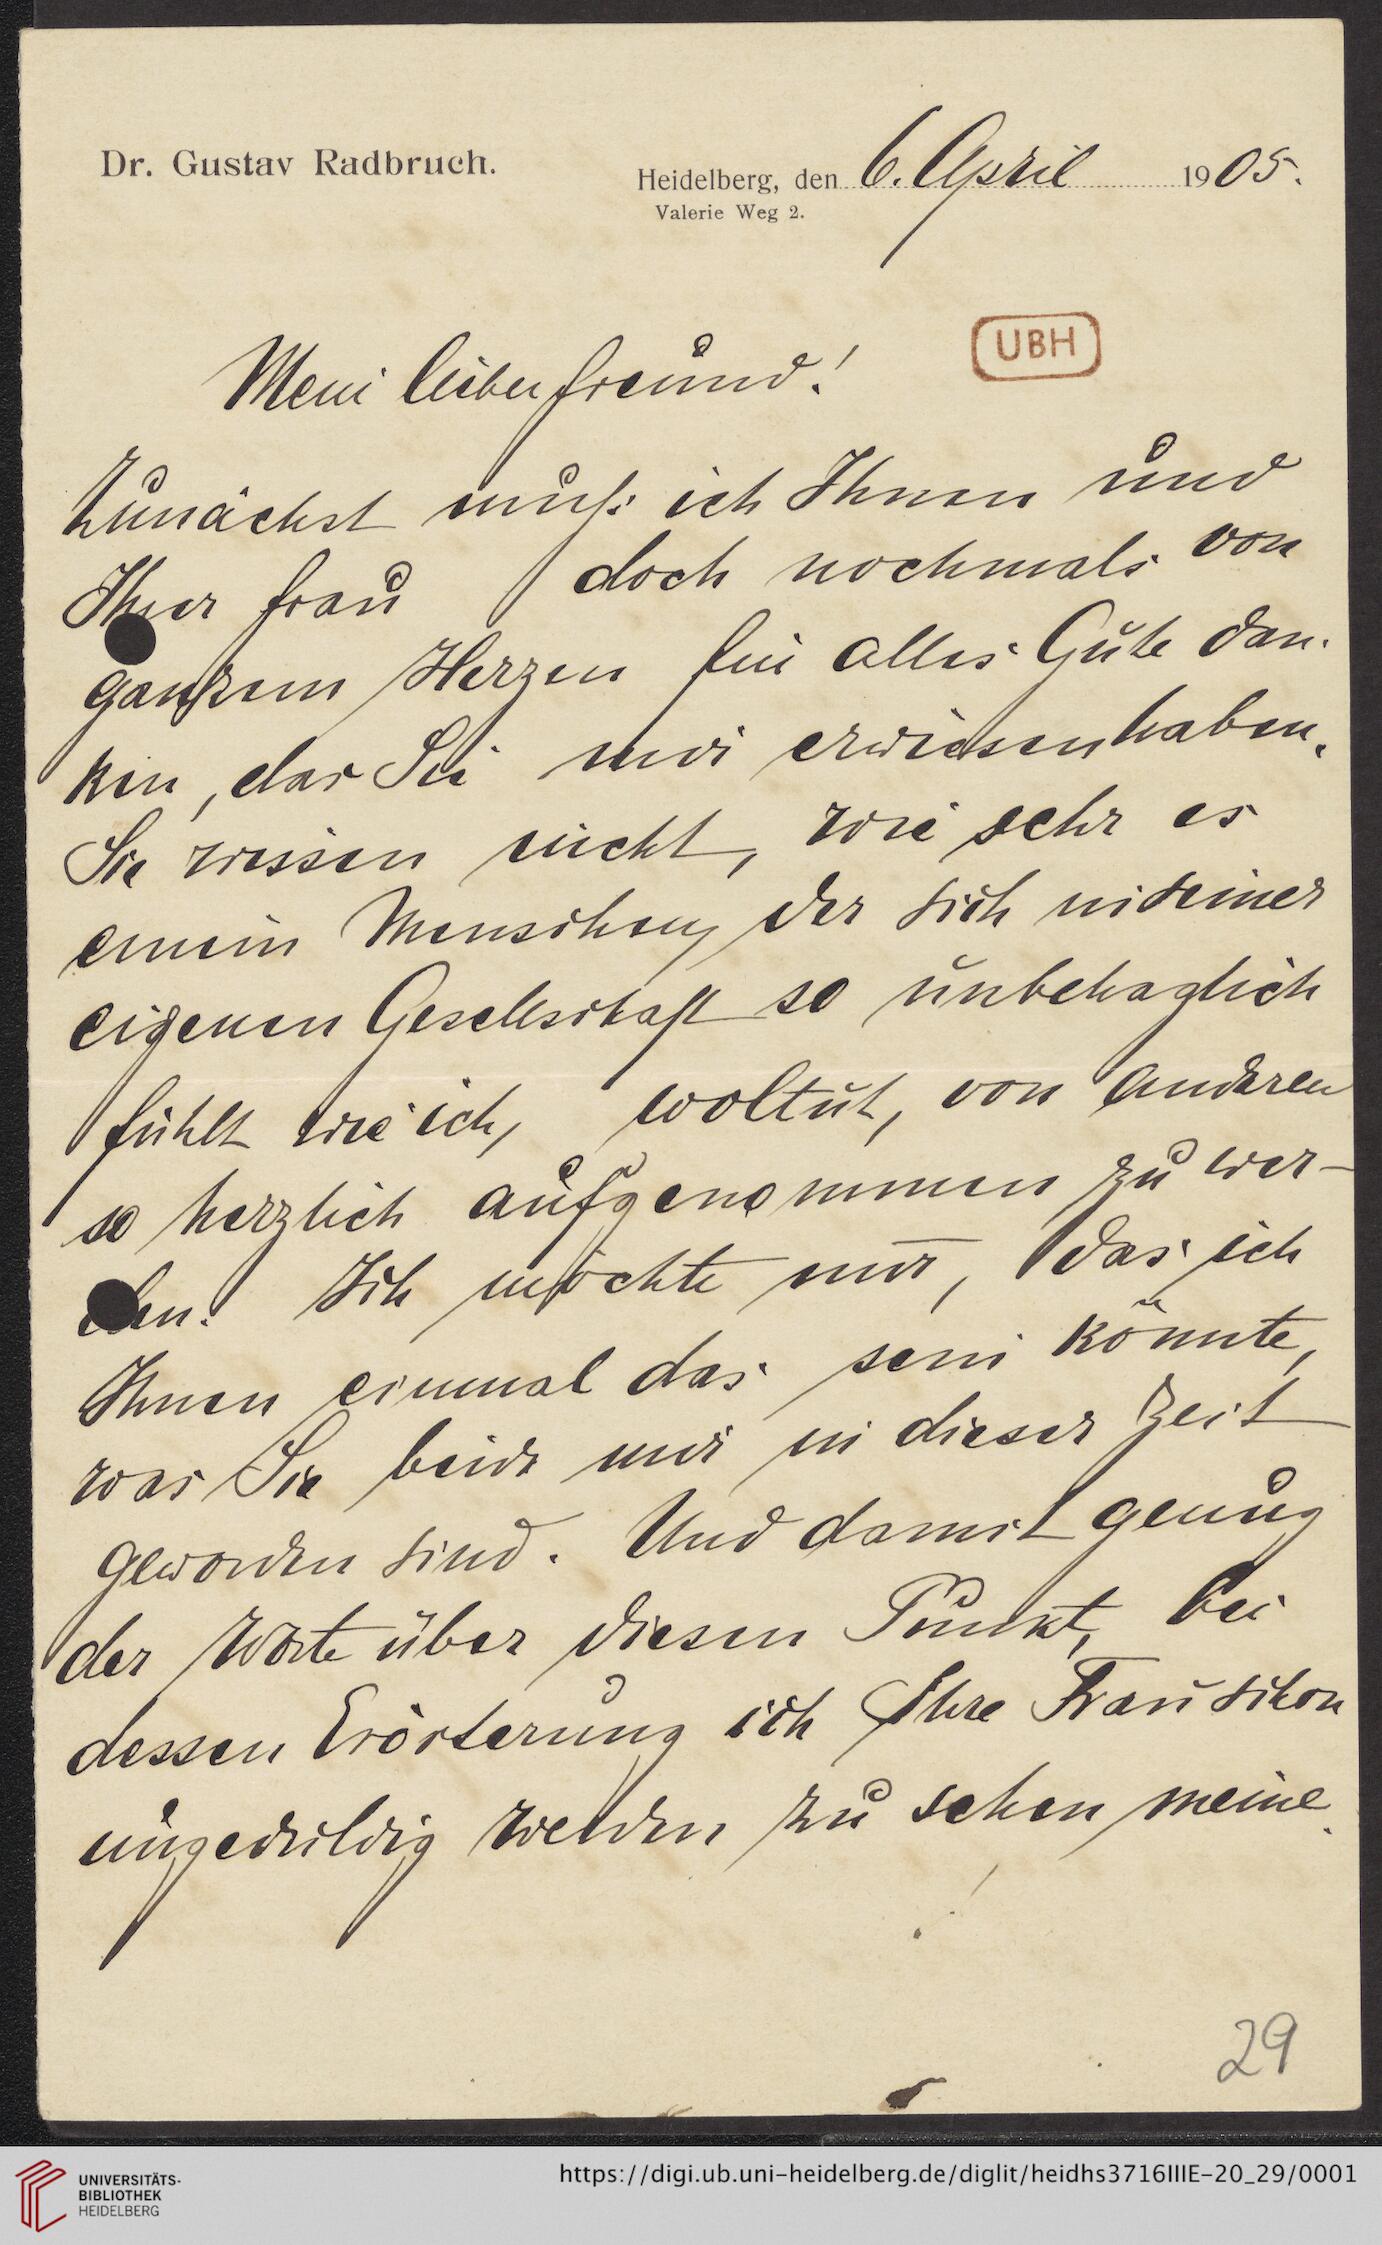 Dr. Gustav Radbruch.
Heidelberg, den 6. April 1905.
Valerie Weg 2.
UBH
Mein lieber Freund!
Zunächst muß ich Ihnen und
Ihrer Frau doch nochmals von
ganzem Herzen für alles Gute dan-
ken, das Sie mir erwiesen haben.
Sie wissen nicht, wie sehr es
einem Menschen, der sich in seiner
eigenen Gesellschaft so unbehaglich
fühlt wie ich, woltut, von anderen
so herzlich aufgenommen zu wer-
den. Ich möchte nur, das ich
Ihnen einmal das sein könnte,
was Sie beide mir in dieser Zeit
geworden sind. Und damit genug
der Worte über diesen Punkt, bei
dessen Erörterung ich Ihre Frau schon
ungeduldig werden zu sehen meine.
29
UNIVERSITÄTS-
BIBLIOTHEK
HEIDELBERG
https://digi.ub.uni-heidelberg.de/diglit/heidhs3716IIIE-20_29/0001